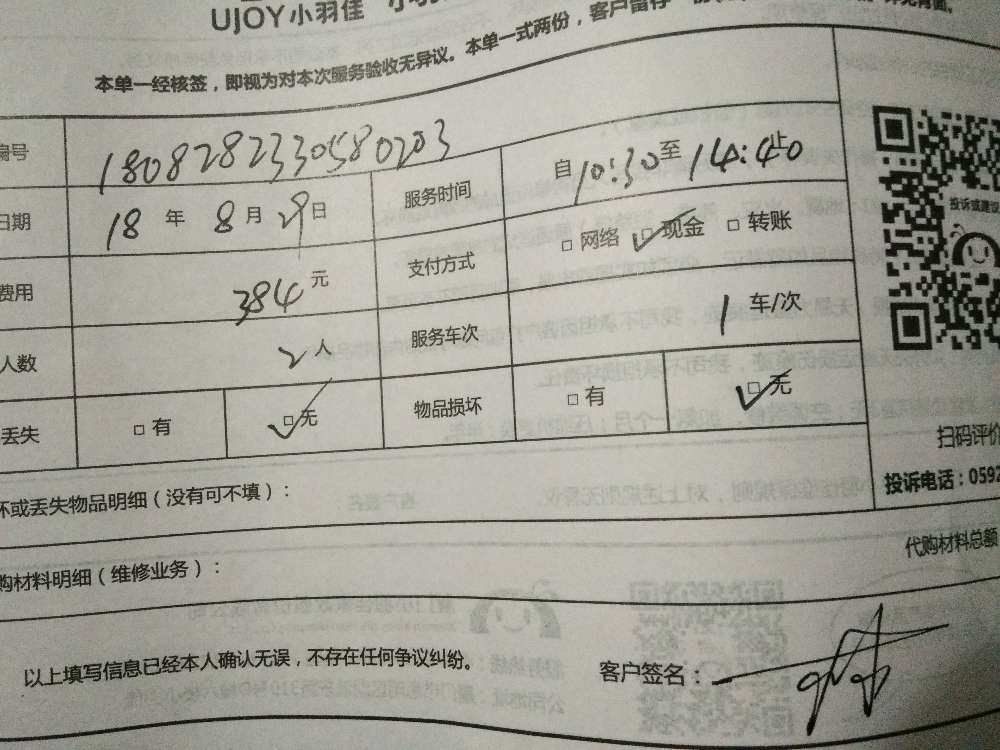 UJOY小羽佳
本单一经核签，即视为对本次服务验收无异议。本单一式两份，客户留存一
编号 1808282330580203
日期 18 年 8 月 29 日 服务时间 自 10:30 至 14:40 止
费用 384 元 支付方式 □ 网络 ☑ 现金 □ 转账
人数 2 人 服务车次 1 车/次
丢失 □ 有 ☑ 无 物品损坏 □ 有 ☑ 无
投诉或建议
扫码评价
投诉电话：0592
坏或丢失物品明细（没有可不填）：
购材料明细（维修业务）：
代购材料总额
以上填写信息已经本人确认无误，不存在任何争议纠纷。
客户签名：